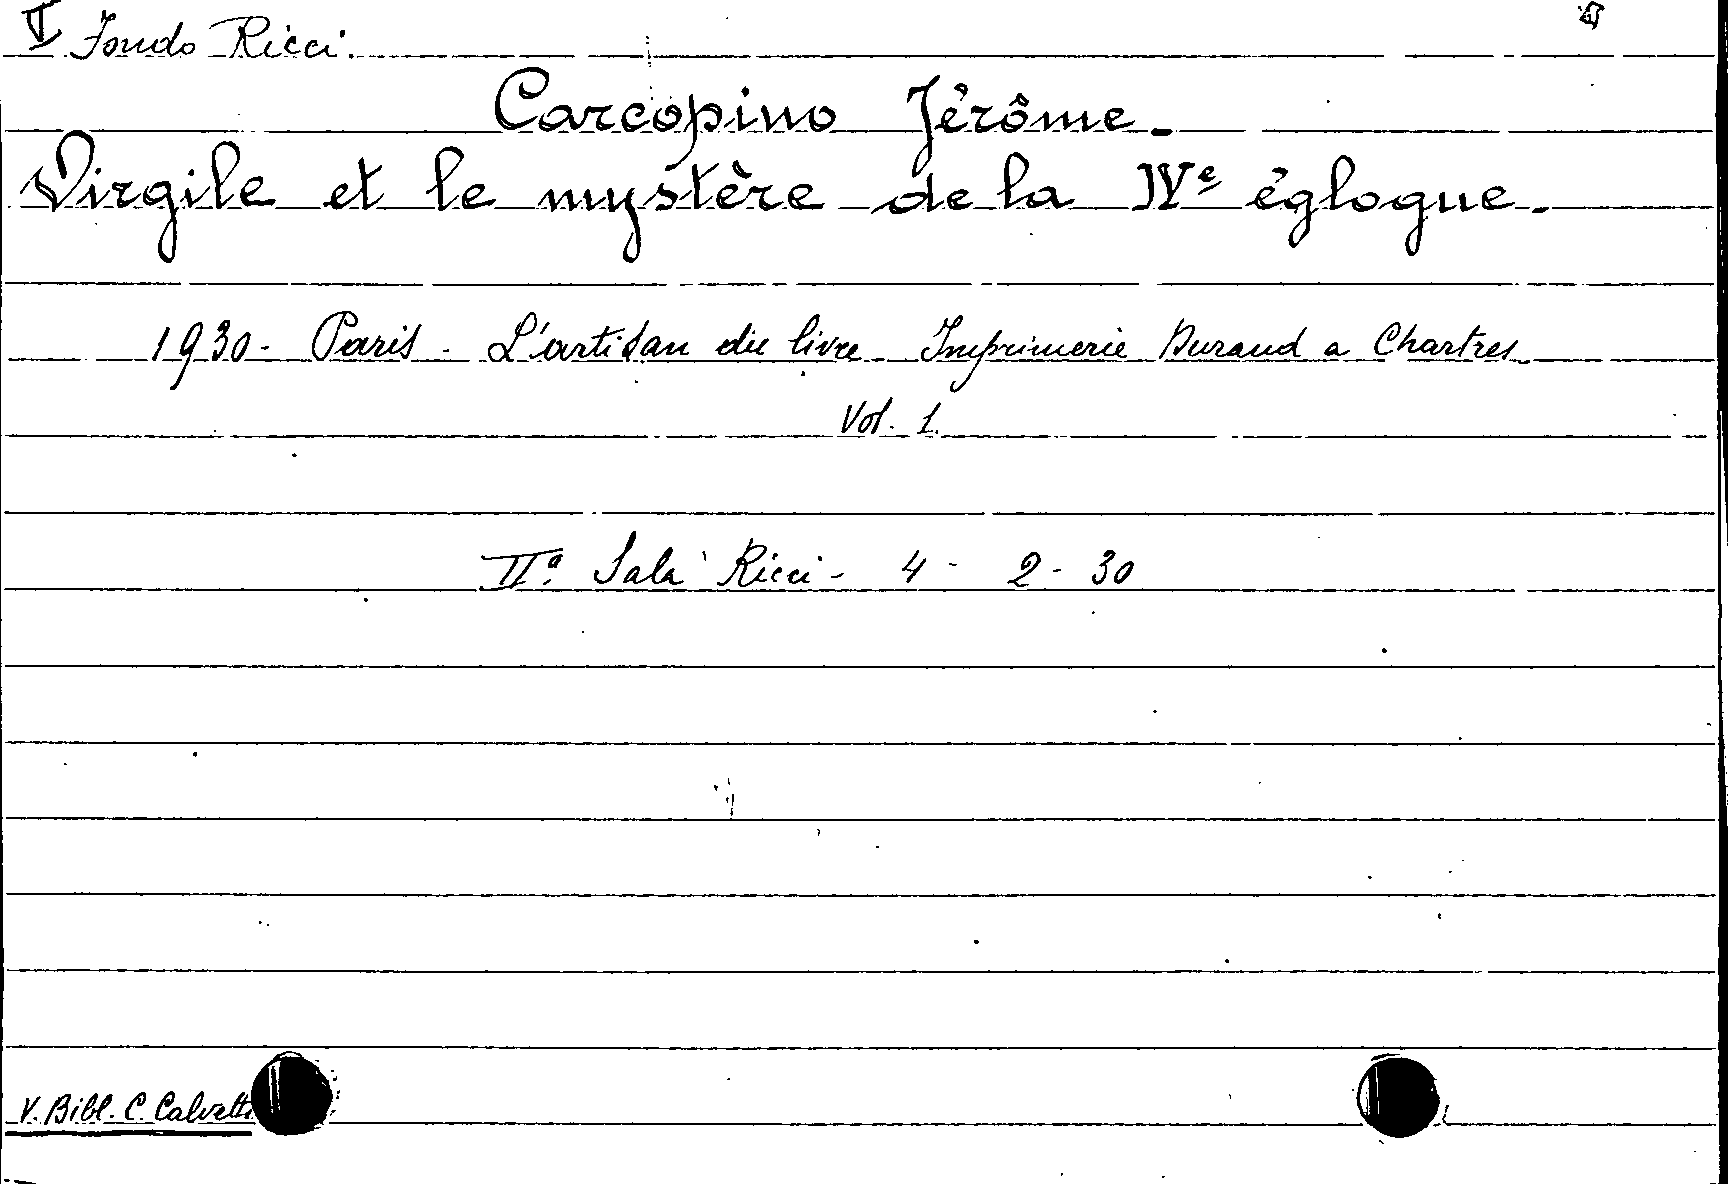 II Fondo Ricci.
Carcopino Jérôme.
Virgile et le mystère de la IVe églogue.
1930 - Paris - L'artisan du livre - Imprimerie Durand a Chartres
Vol. 1.
IIa Sala Ricci - 4 - 2 - 30
V. Bibl. C. Calvetti